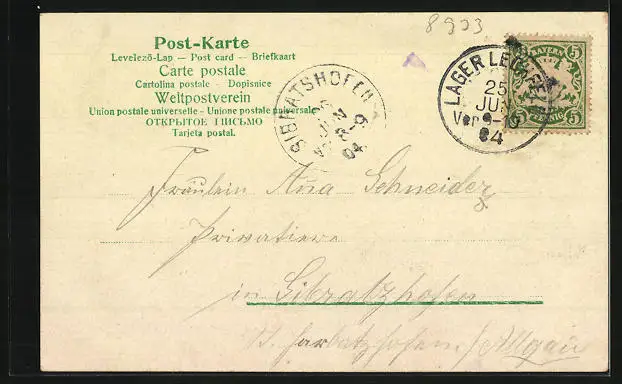 8933
Post-Karte
Levelező-Lap — Post card — Briefkaart
Carte postale
Cartolina postale - Dopisnice
Weltpostverein
Union postale universelle - Unione postale universale
ОТКРЫТОЕ ПИСЬМО
Tairjeta postal.
SIBRATSHOFEN
JUN
04
LAGER LECHFELD
25
JUN
Vor 9-10
04
BAYERN
5 5
PFENNIG
Fräulein Anna Schneider
Privatiere
in Sibratzhofen
Harbatzhofen / Allgäu